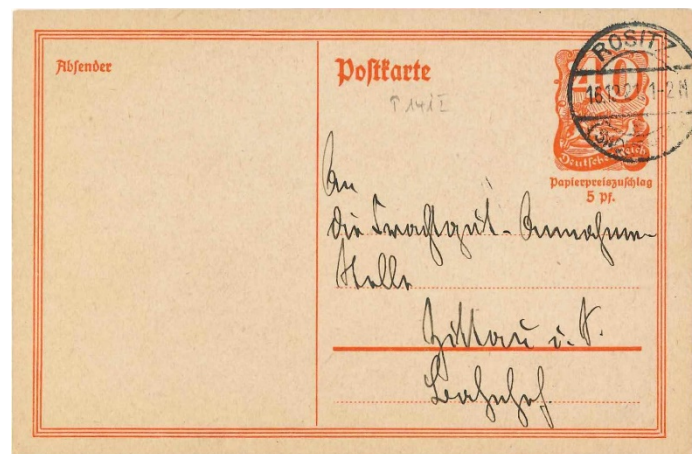 Absender
Postkarte
P 141 I
ROSITZ
40
Deutsches Reich
Papierpreiszuschlag
5 Pf.
An
die Frachtgut-Annahme-
Stelle
Zittau i. S.
Bahnhof.